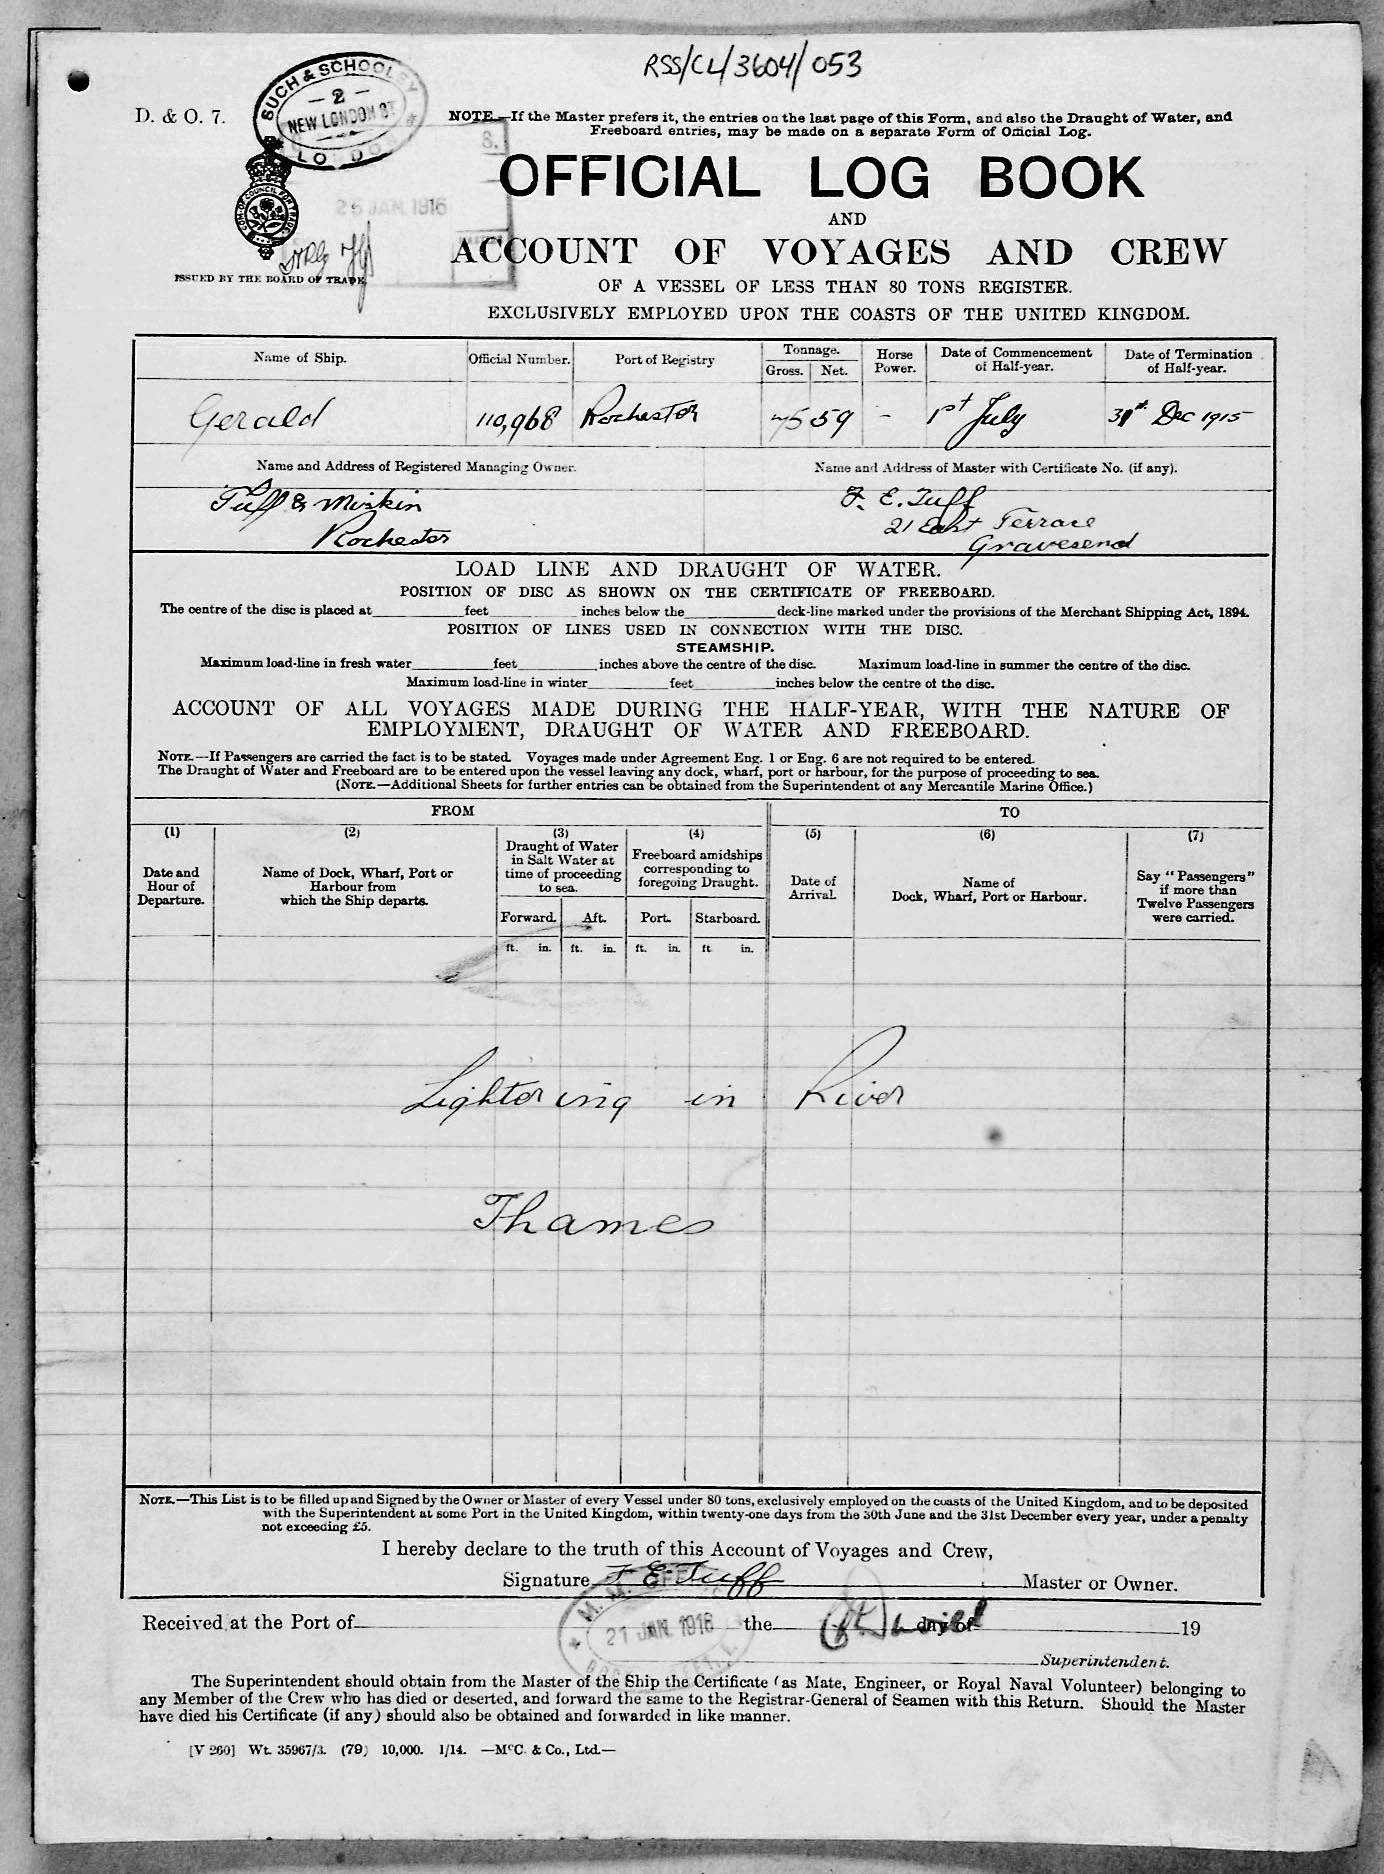 RSS/CL/3604/053
D. & O. 7.
SUCH & SCHOOLEY
- 2 -
NEW LONDON ST
LONDON
NOTE.—If the Master prefers it, the entries on the last page of this Form, and also the Draught of Water, and
Freeboard entries, may be made on a separate Form of Official Log.
OFFICIAL LOG BOOK
26 JAN. 1916
AND
ACCOUNT OF VOYAGES AND CREW
ISSUED BY THE BOARD OF TRADE.
OF A VESSEL OF LESS THAN 80 TONS REGISTER.
EXCLUSIVELY EMPLOYED UPON THE COASTS OF THE UNITED KINGDOM.
Name of Ship. Official Number. Port of Registry Tonnage. Gross. Net. Horse Power. Date of Commencement of Half-year. Date of Termination of Half-year.
Gerald 110,968 Rochester 75 59 - 1st July 31st Dec 1915
Name and Address of Registered Managing Owner. Name and Address of Master with Certificate No. (if any).
Tuff & Miskin F. E. Tuff
Rochester 21 East Terrace
Gravesend
LOAD LINE AND DRAUGHT OF WATER.
POSITION OF DISC AS SHOWN ON THE CERTIFICATE OF FREEBOARD.
The centre of the disc is placed at feet inches below the deck-line marked under the provisions of the Merchant Shipping Act, 1894.
POSITION OF LINES USED IN CONNECTION WITH THE DISC.
STEAMSHIP.
Maximum load-line in fresh water feet inches above the centre of the disc. Maximum load-line in summer the centre of the disc.
Maximum load-line in winter feet inches below the centre of the disc.
ACCOUNT OF ALL VOYAGES MADE DURING THE HALF-YEAR, WITH THE NATURE OF
EMPLOYMENT, DRAUGHT OF WATER AND FREEBOARD.
NOTE.—If Passengers are carried the fact is to be stated. Voyages made under Agreement Eng. 1 or Eng. 6 are not required to be entered.
The Draught of Water and Freeboard are to be entered upon the vessel leaving any dock, wharf, port or harbour, for the purpose of proceeding to sea.
(NOTE.—Additional Sheets for further entries can be obtained from the Superintendent of any Mercantile Marine Office.)
FROM TO
(1) (2) (3) (4) (5) (6) (7)
Date and Hour of Departure.
Name of Dock, Wharf, Port or Harbour from which the Ship departs.
Draught of Water in Salt Water at time of proceeding to sea.
Freeboard amidships corresponding to foregoing Draught.
Date of Arrival.
Name of Dock, Wharf, Port or Harbour.
Say "Passengers" if more than Twelve Passengers were carried.
Forward. Aft. Port. Starboard.
ft. in. ft. in. ft. in. ft in.
Lightering in River
Thames
NOTE.—This List is to be filled up and Signed by the Owner or Master of every Vessel under 80 tons, exclusively employed on the coasts of the United Kingdom, and to be deposited
with the Superintendent at some Port in the United Kingdom, within twenty-one days from the 30th June and the 31st December every year, under a penalty
not exceeding £5.
I hereby declare to the truth of this Account of Voyages and Crew,
Signature F E Tuff Master or Owner.
Received at the Port of the day of 19
21 JAN. 1916
Superintendent.
The Superintendent should obtain from the Master of the Ship the Certificate (as Mate, Engineer, or Royal Naval Volunteer) belonging to
any Member of the Crew who has died or deserted, and forward the same to the Registrar-General of Seamen with this Return. Should the Master
have died his Certificate (if any) should also be obtained and forwarded in like manner.
[V 260] Wt. 35967/3. (79) 10,000. 1/14. —McC. & Co., Ltd.—